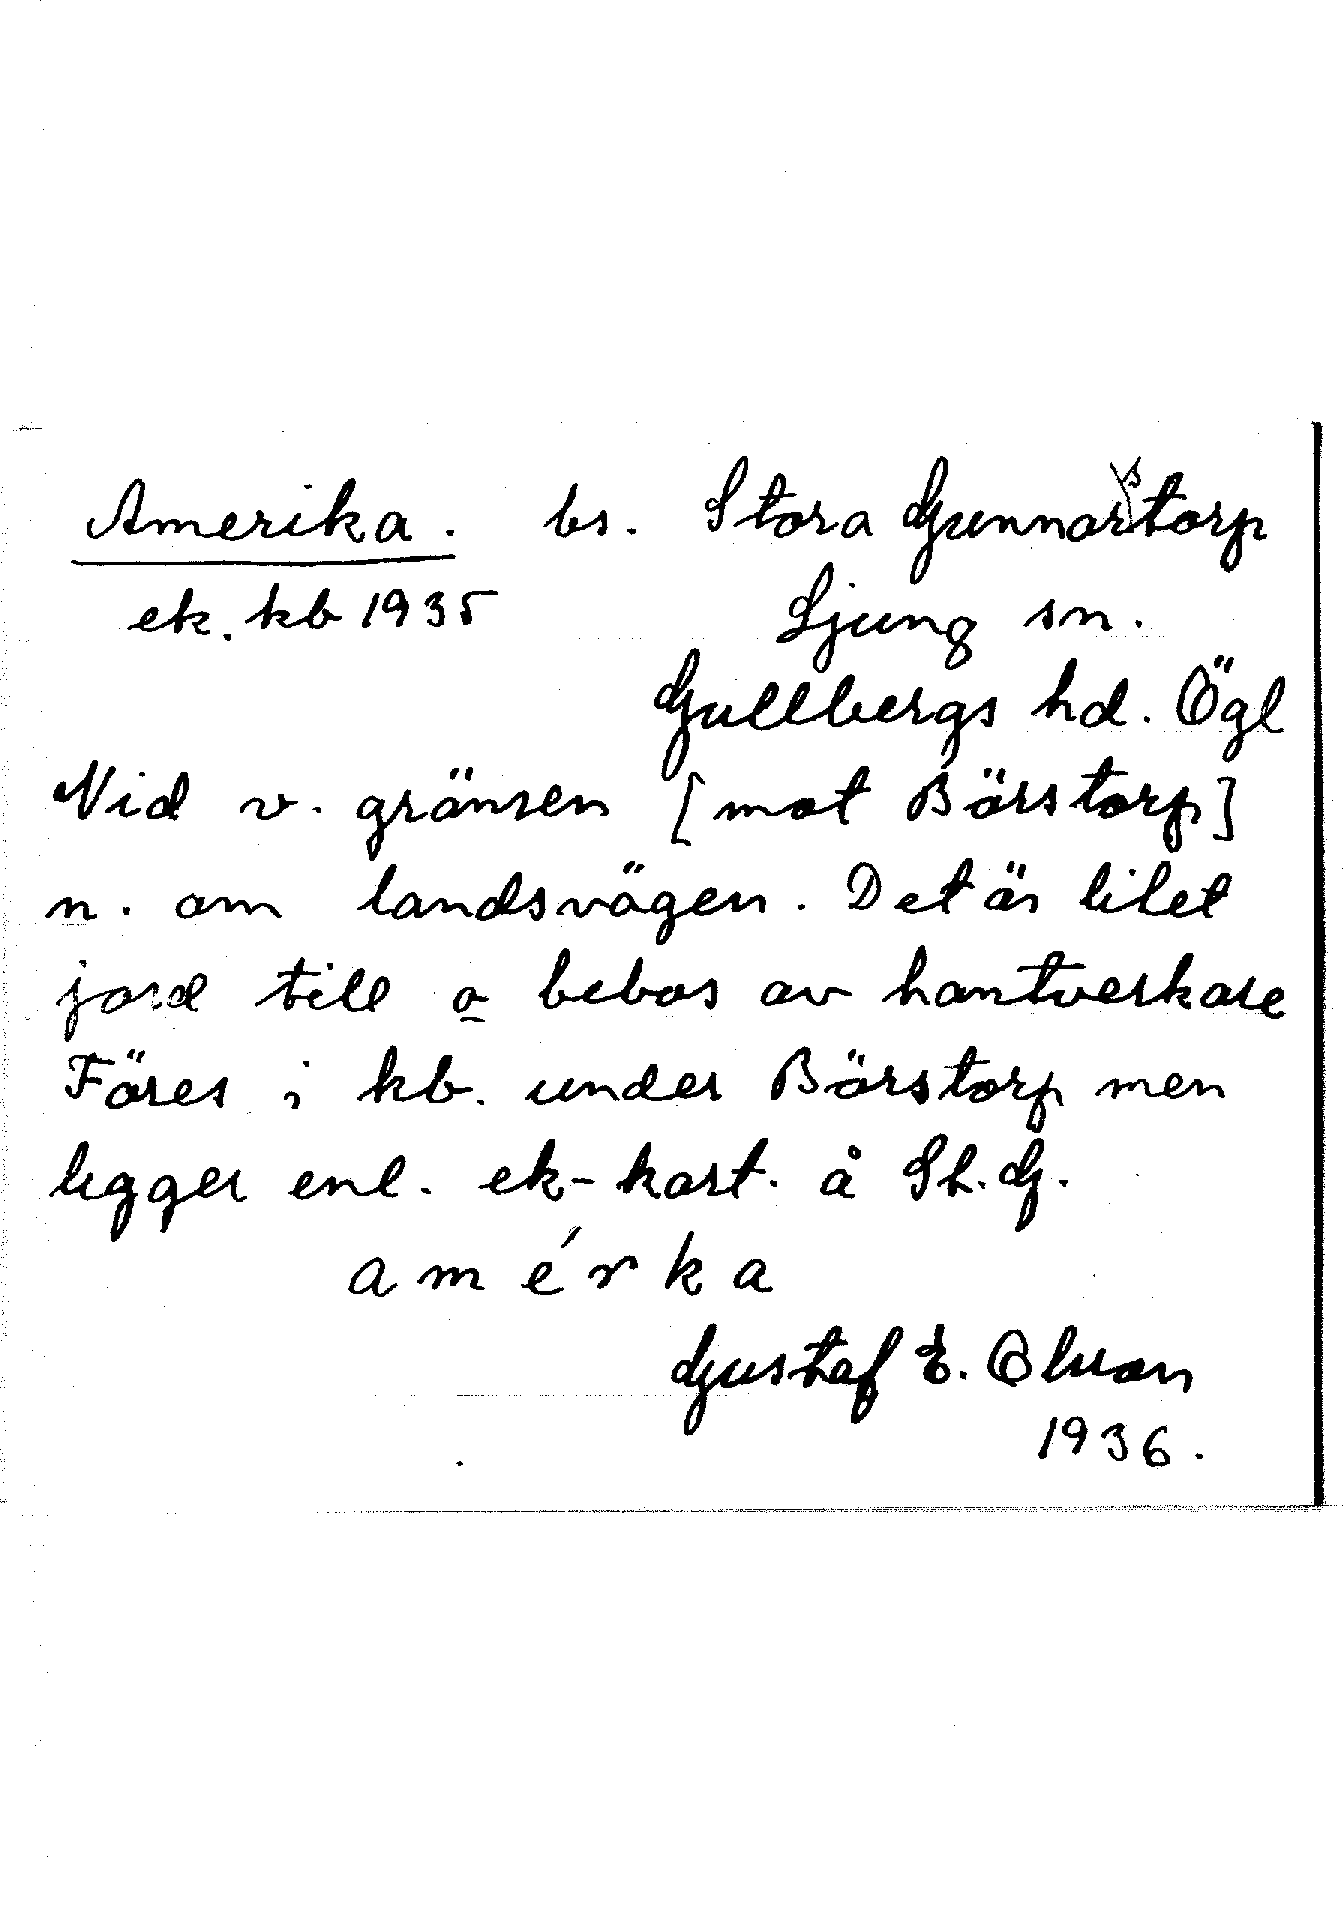 Amerika. bs. Stora Gunnarstorp
ek. kb 1935 Ljung sn.
Gullbergs hd. Ögl
Vid v. gränsen [mot Börstorp]
n. om landsvägen. Det är litet
jord till o bebos av hantverkare
Föres i kb. under Börstorp men
ligger enl. ek-kart. å St. G.
amérka
Gustaf E. Olsson
1936.